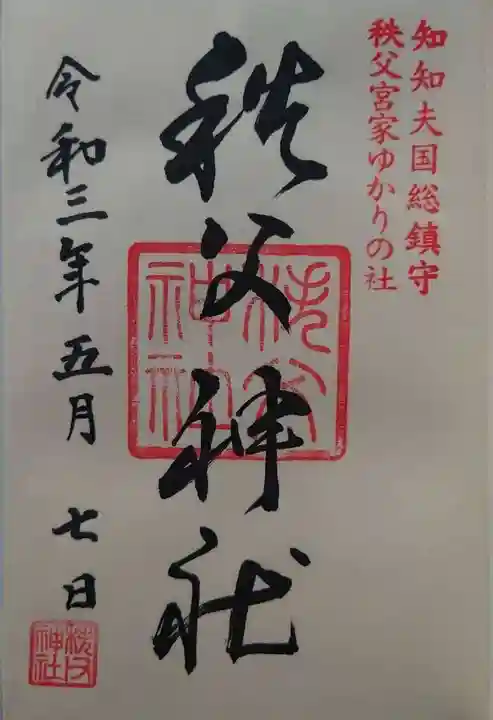 知知夫国総鎮守
秩父宮家ゆかりの社
秩父神社
秩父神社
令和三年五月 七日
秩父神社